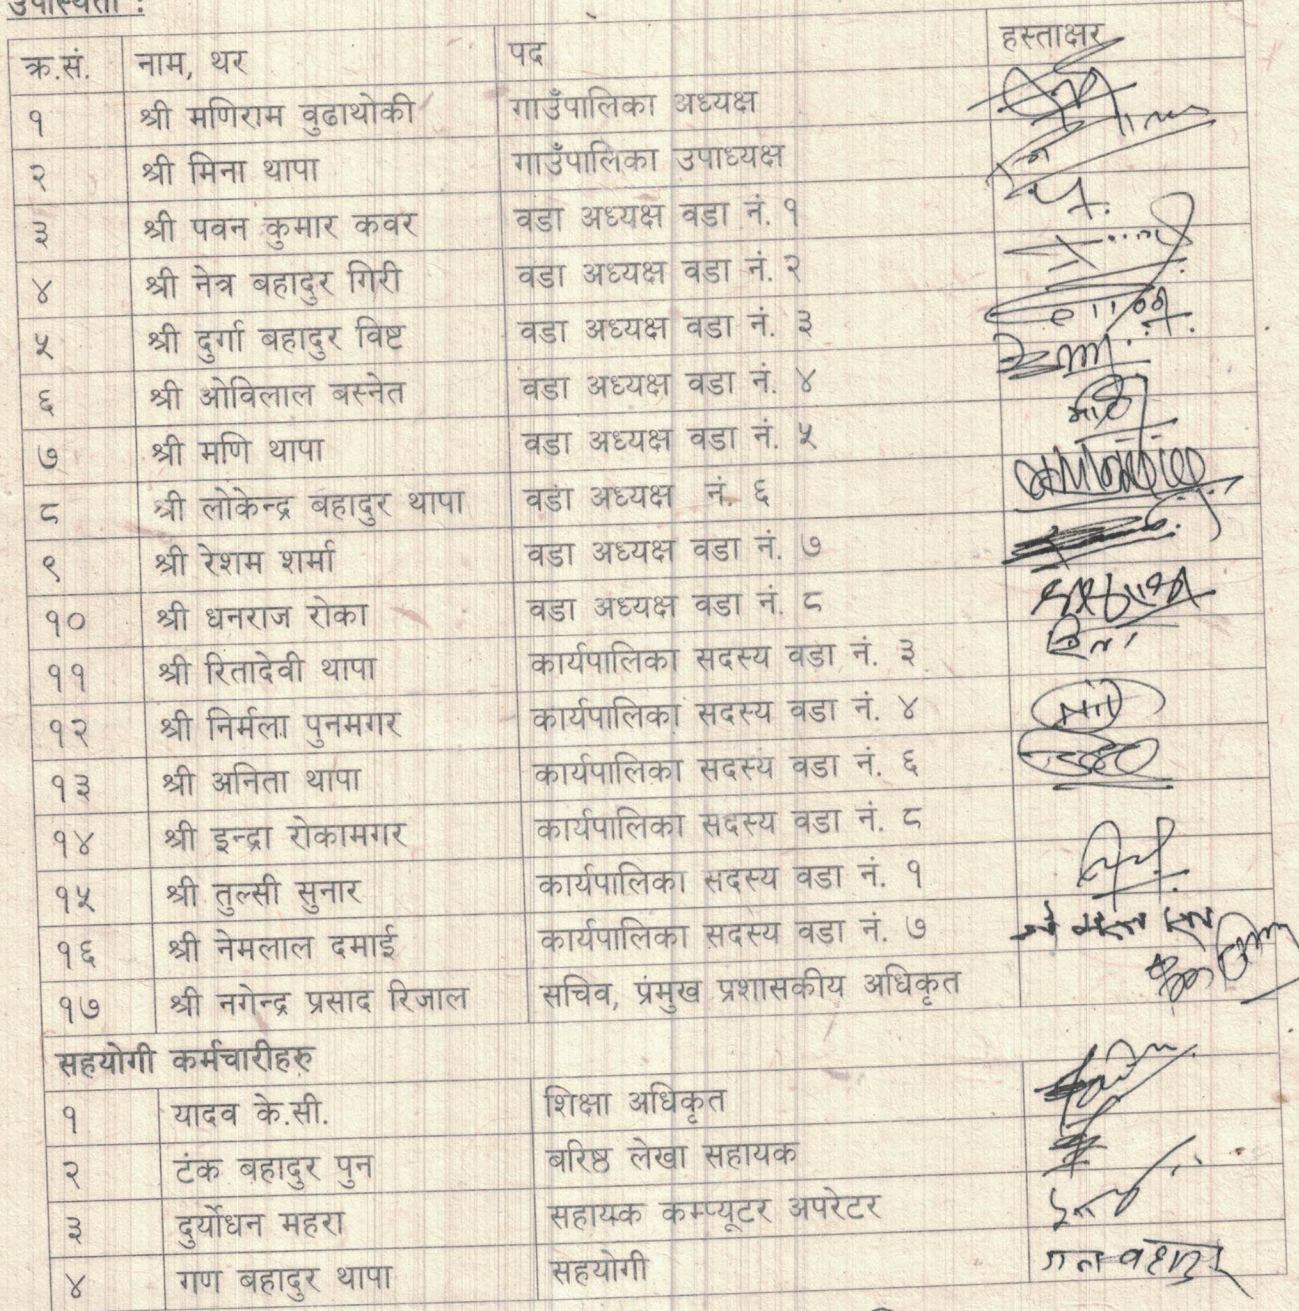 उपस्थिती :
क्र.सं. नाम, थर पद हस्ताक्षर
१ श्री मणिराम वुढाथोकी गाउँपालिका अध्यक्ष
२ श्री मिना थापा गाउँपालिका उपाध्यक्ष
३ श्री पवन कुमार कवर वडा अध्यक्ष वडा नं. १
४ श्री नेत्र बहादुर गिरी वडा अध्यक्ष वडा नं. २
५ श्री दुर्गा बहादुर विष्ट वडा अध्यक्ष वडा नं. ३
६ श्री ओविलाल बस्नेत वडा अध्यक्ष वडा नं. ४
७ श्री मणि थापा वडा अध्यक्ष वडा नं. ५
८ श्री लोकेन्द्र बहादुर थापा वडा अध्यक्ष नं. ६
९ श्री रेशम शर्मा वडा अध्यक्ष वडा नं. ७
१० श्री धनराज रोका वडा अध्यक्ष वडा नं. ८
११ श्री रितादेवी थापा कार्यपालिका सदस्य वडा नं. ३
१२ श्री निर्मला पुनमगर कार्यपालिका सदस्य वडा नं. ४
१३ श्री अनिता थापा कार्यपालिका सदस्य वडा नं. ६
१४ श्री इन्द्रा रोकामगर कार्यपालिका सदस्य वडा नं. ८
१५ श्री तुल्सी सुनार कार्यपालिका सदस्य वडा नं. १
१६ श्री नेमलाल दमाई कार्यपालिका सदस्य वडा नं. ७
१७ श्री नगेन्द्र प्रसाद रिजाल सचिव, प्रमुख प्रशासकीय अधिकृत
सहयोगी कर्मचारीहरु
१ यादव के.सी. शिक्षा अधिकृत
२ टंक बहादुर पुन बरिष्ठ लेखा सहायक
३ दुर्योधन महरा सहायक कम्प्यूटर अपरेटर
४ गण बहादुर थापा सहयोगी